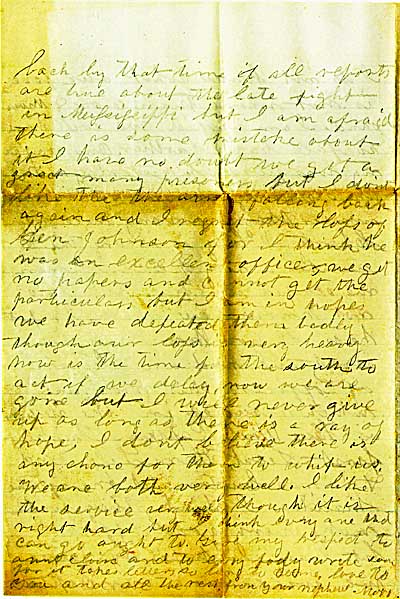 back by that time if all reports
are true about the late fight
in Mississippi but I am afraid
there is some mistake about
it I have no doubt we got a
great many prisoners but I don't
like the falling back
again and I regret the loss of
Gen Johnson for I think he
was an excellent officer, we get
no papers and cannot get the
particulars but I am in hopes
we have defeated them badly
though our loss is very heavy
now is the time for the south to
act if we delay now we are
gone but I will never give
up as long as there is a ray of
hope, I dont believe there is
any chanc for them to whip us,
We are both very well. I like
the service very well though it is
right hard but I think every one that
can go ought to. my respect to
aunt and to every body write soon
for it takes letters love to
and all the rest from your nephew